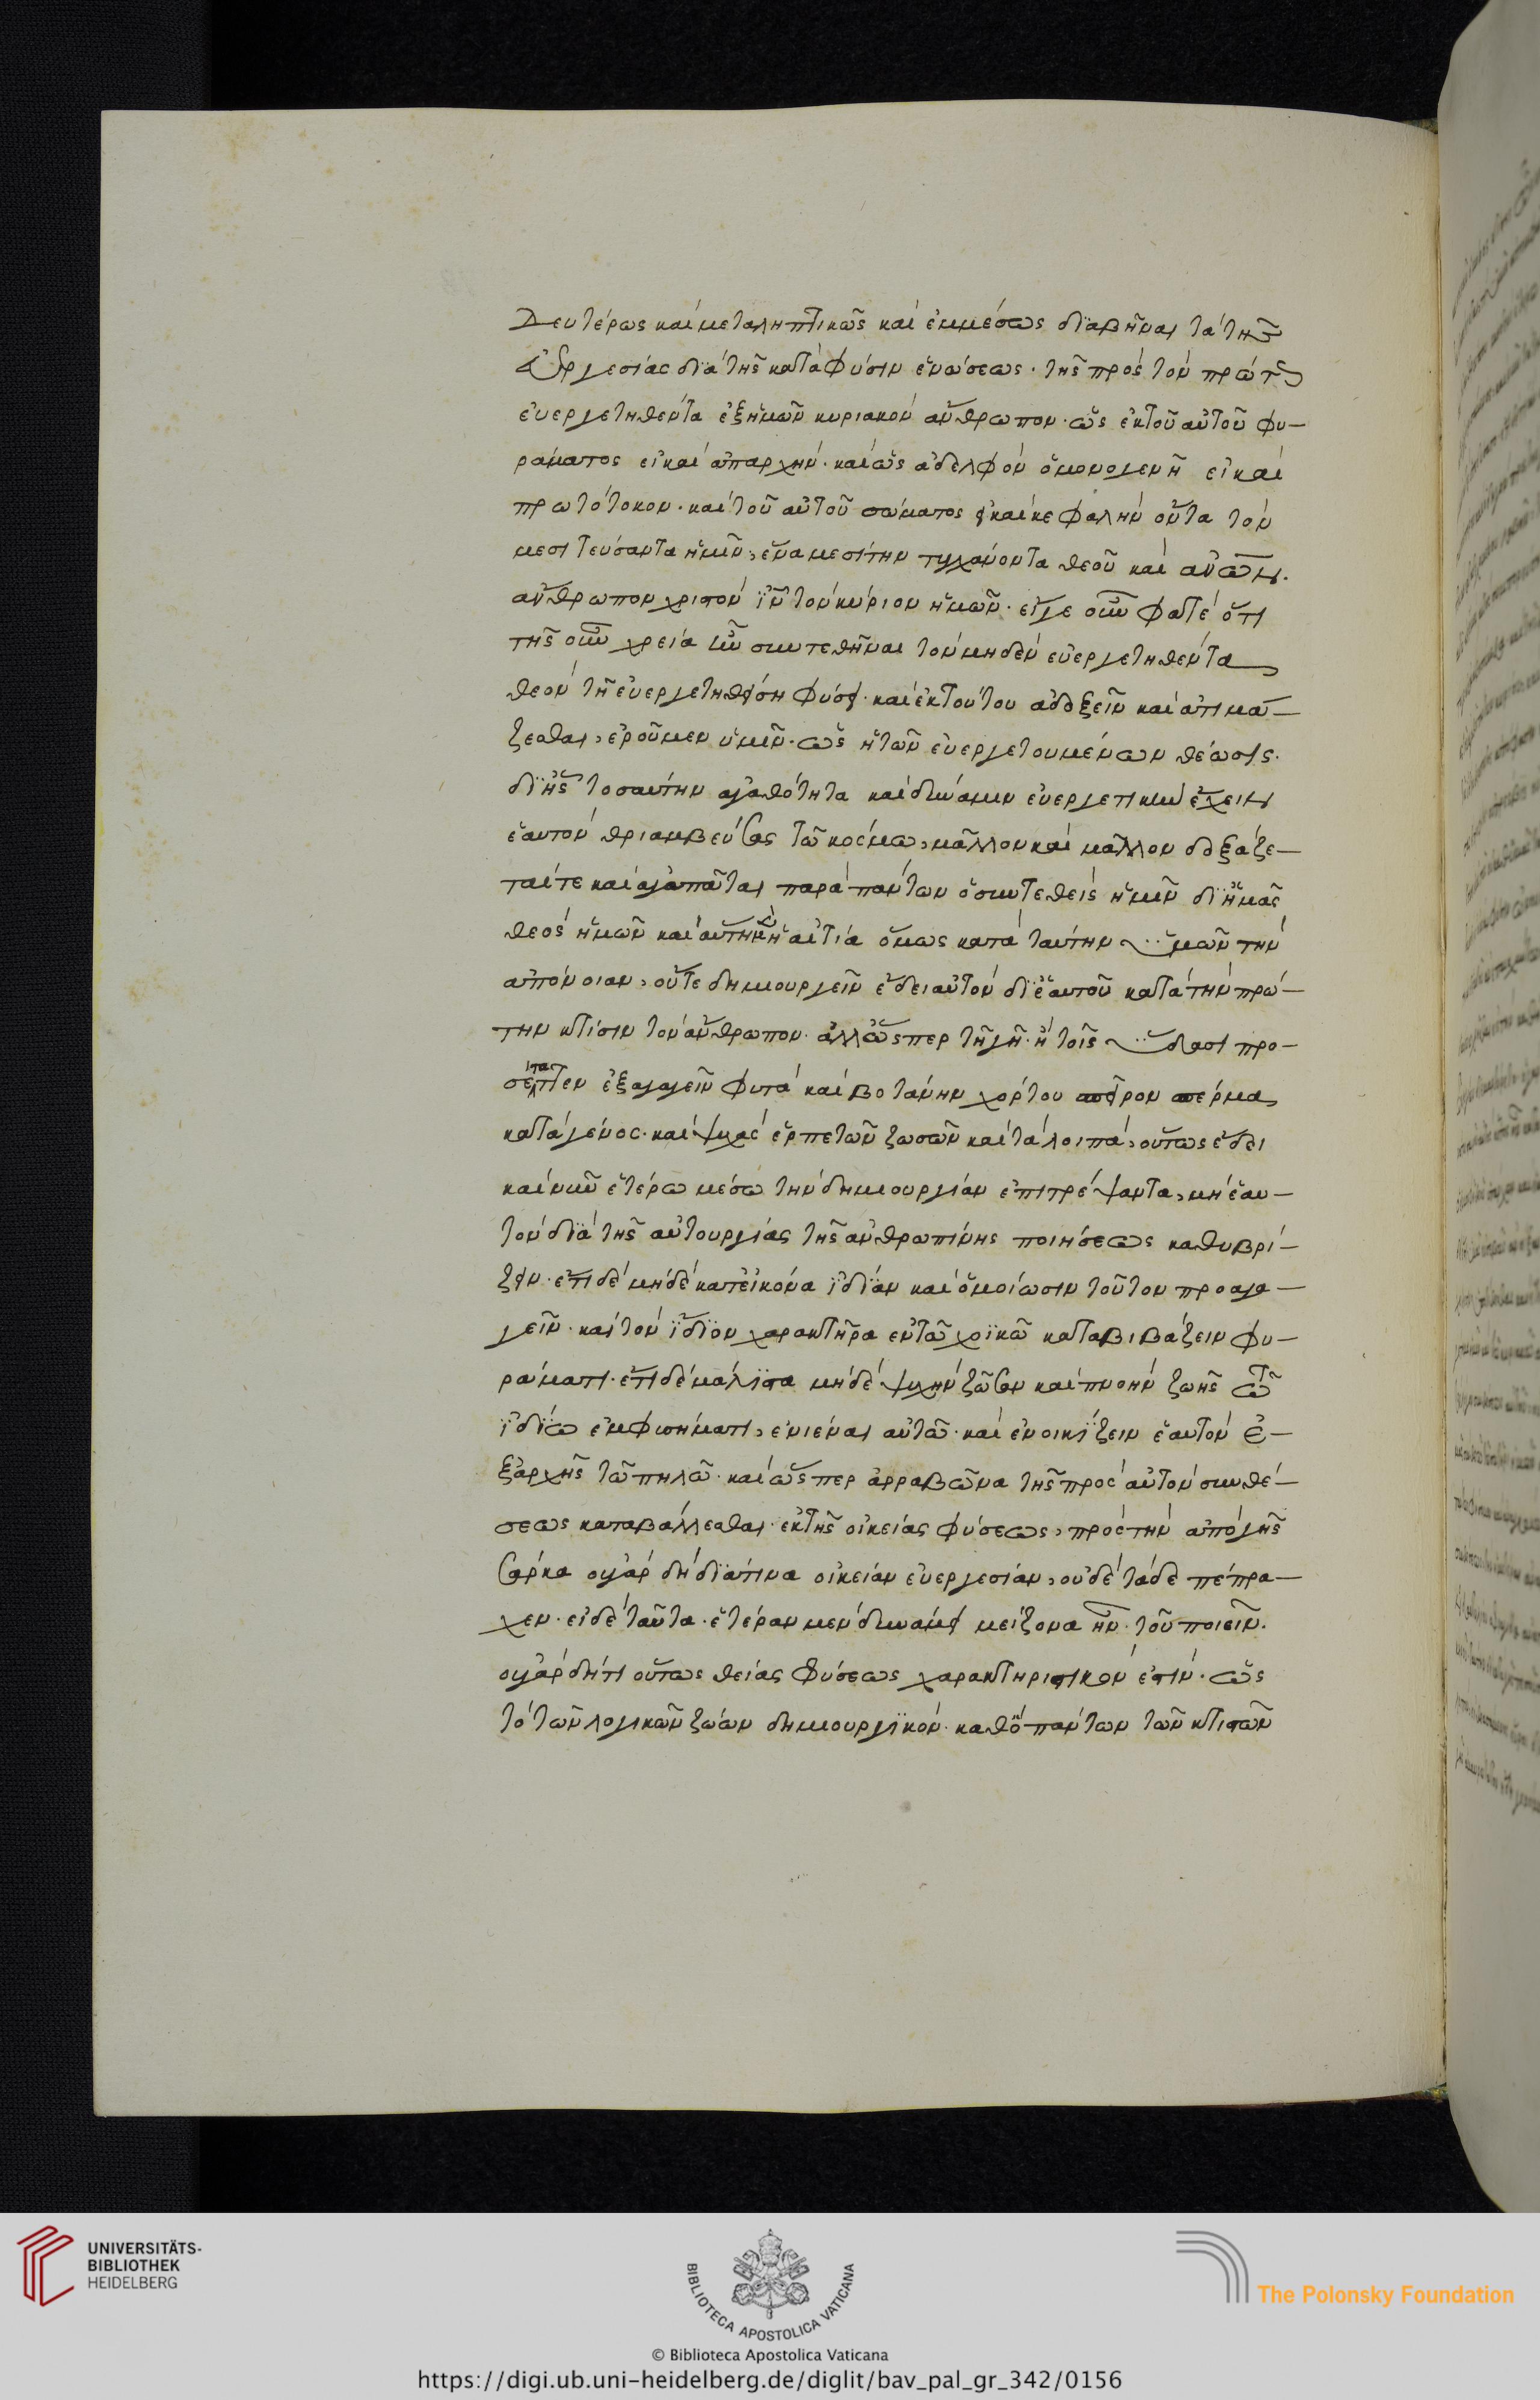 Δευτέρως καὶ μεταληπτικῶς καὶ ἐμμέσως διαβῆναι τὰ τῆς
εὐεργεσίας διὰ τῆς κατὰ φύσιν ἑνώσεως· τῆς πρὸς τὸν πρώτως
εὐεργετηθέντα ἐξ ἡμῶν κυριακὸν ἄνθρωπον· ὡς ἐκ τοῦ αὐτοῦ φυ-
ράματος εἰ καὶ ἀπαρχήν· καὶ ὡς ἀδελφὸν ὁμονογενῆ εἰ καὶ
πρωτότοκον· καὶ τοῦ αὐτοῦ σώματος εἰ καὶ κεφαλὴν ὄντα τὸν
μεσιτεύσαντα ἡμῖν, ἕνα μεσίτην τυγχάνοντα θεοῦ καὶ ἀνων·
ἄνθρωπον χριστὸν ιν τὸν κύριον ἡμῶν· εἴγε οὖν φατὲ ὅτι
τῆς οὖν χρεία ἦν συντεθῆναι τὸν μηδὲν εὐεργετηθέντα
θεὸν τῇ εὐεργετηθείσῃ φύσει· καὶ ἐκ τούτου ἀδοξεῖν καὶ ἀτιμά-
ζεσθαι, ἐροῦμεν ὑμῖν· ὡς ἡ τῶν εὐεργετουμένων θέωσις·
δι' ἧς τοσαύτην ἀγαθότητα καὶ δύναμιν εὐεργετικὴν ἔχειν
ἑαυτὸν θριαμβεύσας τῷ κόσμῳ, μᾶλλον καὶ μᾶλλον δοξάζε-
ταί τε καὶ ἀγαπᾶται παρὰ πάντων ὁ συντεθεὶς ἡμῖν δι' ἡμᾶς
θεὸς ἡμῶν καὶ αὕτη ἡ αἰτία ὅμως κατὰ ταύτην ὑμῶν τὴν
ἀπόνοιαν, οὔτε δημιουργεῖν ἔδει αὐτὸν δι' ἑαυτοῦ κατὰ τὴν πρώ-
την κτίσιν τὸν ἄνθρωπον· ἀλλ' ὥσπερ τῇ γῇ· ἢ τοῖς ὕδασι προ-
σέταττεν ἐξαγαγεῖν φυτὰ καὶ βοτάνην χόρτου σπεῖρον σπέρμα
κατὰ γένος· καὶ ψυχὰς ἑρπετῶν ζωσῶν καὶ τὰ λοιπά, οὕτως ἔδει
καὶ νῦν ἑτέρῳ μέσῳ τὴν δημιουργίαν ἐπιτρέψαντα, μὴ ἑαυ-
τὸν διὰ τῆς αὐτουργίας τῆς ἀνθρωπίνης ποιήσεως καθυβρί-
ζειν· ἔτι δὲ μηδὲ κατ' εἰκόνα ἰδίαν καὶ ὁμοίωσιν τοῦτον προαγα-
γεῖν· καὶ τὸν ἴδιον χαρακτῆρα ἐν τῷ χοϊκῷ καταβιβάζειν φυ-
ράματι· ἔτι δὲ μάλιστα μηδὲ ψυχὴν ζῶσαν καὶ πνοὴν ζωῆς τῷ
ἰδίῳ ἐμφυσήματι, ἐνιέναι αὐτῷ· καὶ ἐνοικίζειν ἑαυτὸν ἐ-
ξ ἀρχῆς τῷ πηλῷ· καὶ ὥσπερ ἀρραβῶνα τῆς πρὸς αὐτὸν συνθέ-
σεως καταβάλλεσθαι· ἐκ τῆς οἰκείας φύσεως, πρὸς τὴν ἀπὸ γῆς
σάρκα οὐ γὰρ δὴ διά τινα οἰκείαν εὐεργεσίαν, οὐδὲ τάδε πέπρα-
χεν· εἰ δὲ ταῦτα· ἑτέραν μὲν δυνάμει μείζονα ἦν· τοῦ ποιεῖν·
οὐ γὰρ δή τι οὕτως θείας φύσεως χαρακτηριστικόν ἐστιν· ὡς
τὸ τῶν λογικῶν ζώων δημιουργικόν· καθὸ πάντων τῶν κτιστῶν
UNIVERSITÄTS-
BIBLIOTHEK
HEIDELBERG
BIBLIOTECA APOSTOLICA VATICANA
The Polonsky Foundation
© Biblioteca Apostolica Vaticana
https://digi.ub.uni-heidelberg.de/diglit/bav_pal_gr_342/0156